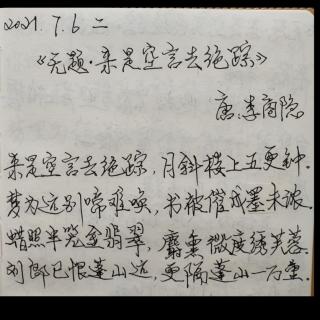 2021.7.6 二
《无题·来是空言去绝踪》
唐.李商隐
来是空言去绝踪,月斜楼上五更钟.
梦为远别啼难唤,书被催成墨未浓.
蜡照半笼金翡翠,麝熏微度绣芙蓉.
刘郎已恨蓬山远,更隔蓬山一万重.